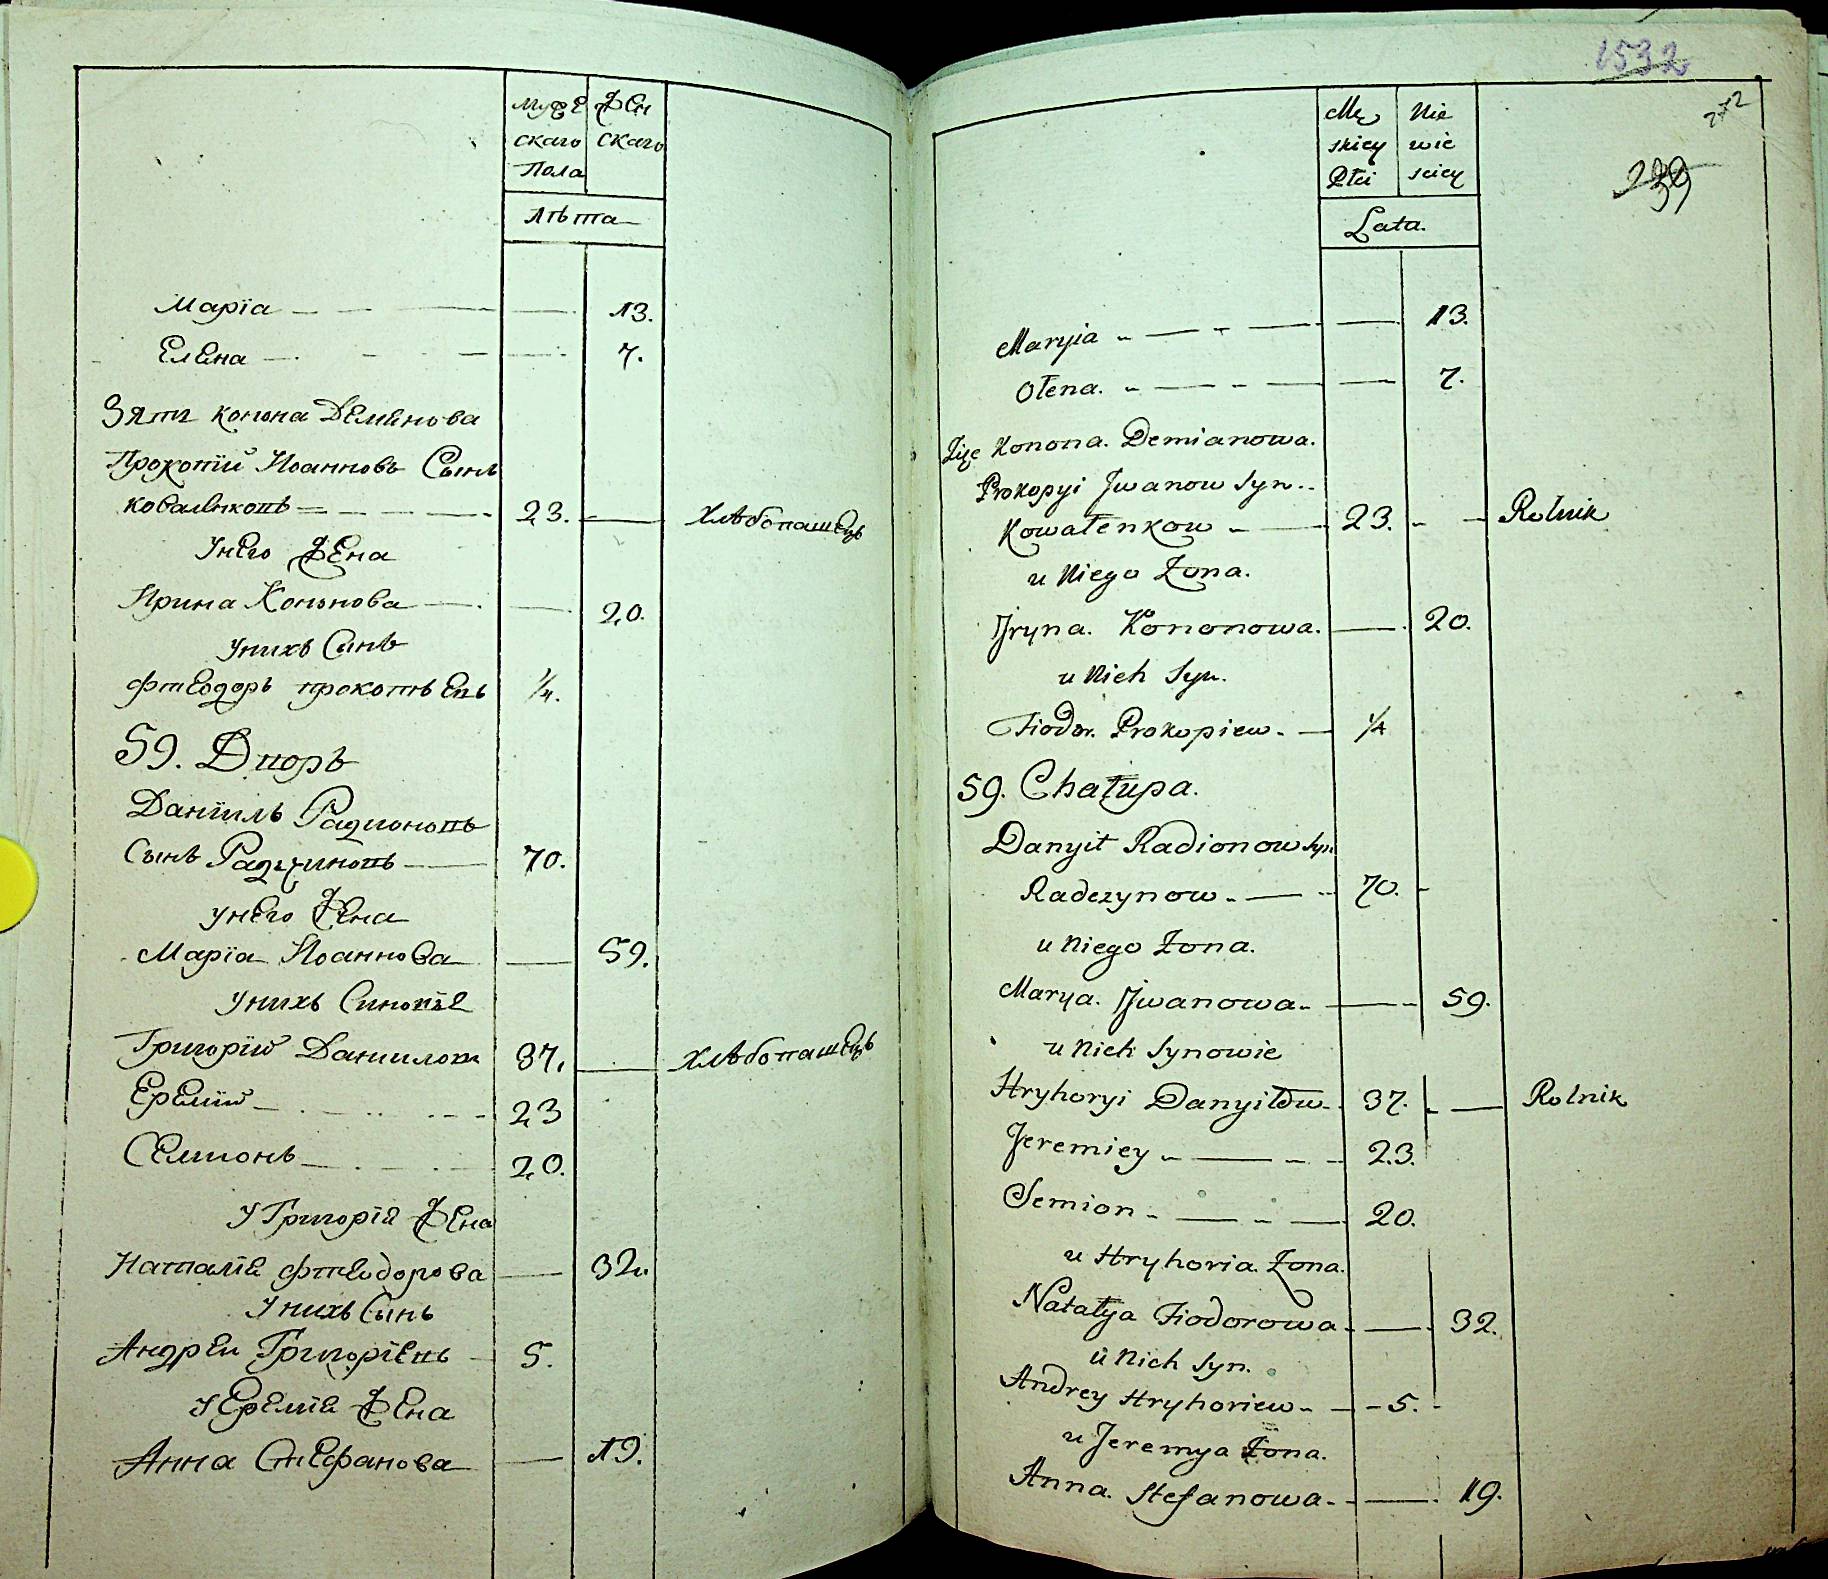 Мужескаго Пола
Женскаго
Лѣта
Марїа — — — 13.
Елена — — — 7.
Зять конона Деменова
Прокопїй Иоанновъ Сынъ
коваленковъ — — 23. — Хлѣбопашецъ
У него Жена
Ирина Кононова — — 20.
У нихъ Сынъ
Фтеодоръ прокопѣевъ 1/4.
59. Дворъ
Данїилъ Радионовъ
Сынъ Радзиновъ — 70.
У него Жена
Марїа Иоаннова — 59.
У нихъ Синовїе
Григорїй Даниловъ 37. — Хлѣбопашецъ
Еремїй — — 23
Семионъ — — 20.
У Григорїа Жена
Наталїа фтеодорова — 32.
У нихъ Сынъ
Андреи Григорїевъ — 5.
У Еремїа Жена
Анна Стефанова — 19.
1532
272
239
Męskiey Płci
Niewieściey
Lata.
Maryia — — — 13.
Ołena. — — — 7.
Zięc Konona. Demianowa.
Prokopyi Jwanow Syn.
Kowałenkow — 23. — Rolnik
u Niego Żona.
Jryna. Kononowa. — 20.
u Nich Syn.
Fiodor. Prokopiew. — 1/4
59. Chałupa.
Danyił Radionow Syn
Radczynow. — 70.
u Niego Żona.
Marya. Jwanowa — 59.
u Nich Synowie
Hryhoryi Danyiłow — 37. — Rolnik
Jeremiey — — 23.
Semion — — 20.
u Hryhoria. Żona.
Natalya Fiodorowa — 32.
u Nich Syn.
Andrey Hryhoriew — 5.
u Jeremya Żona.
Anna. Stefanowa — 19.